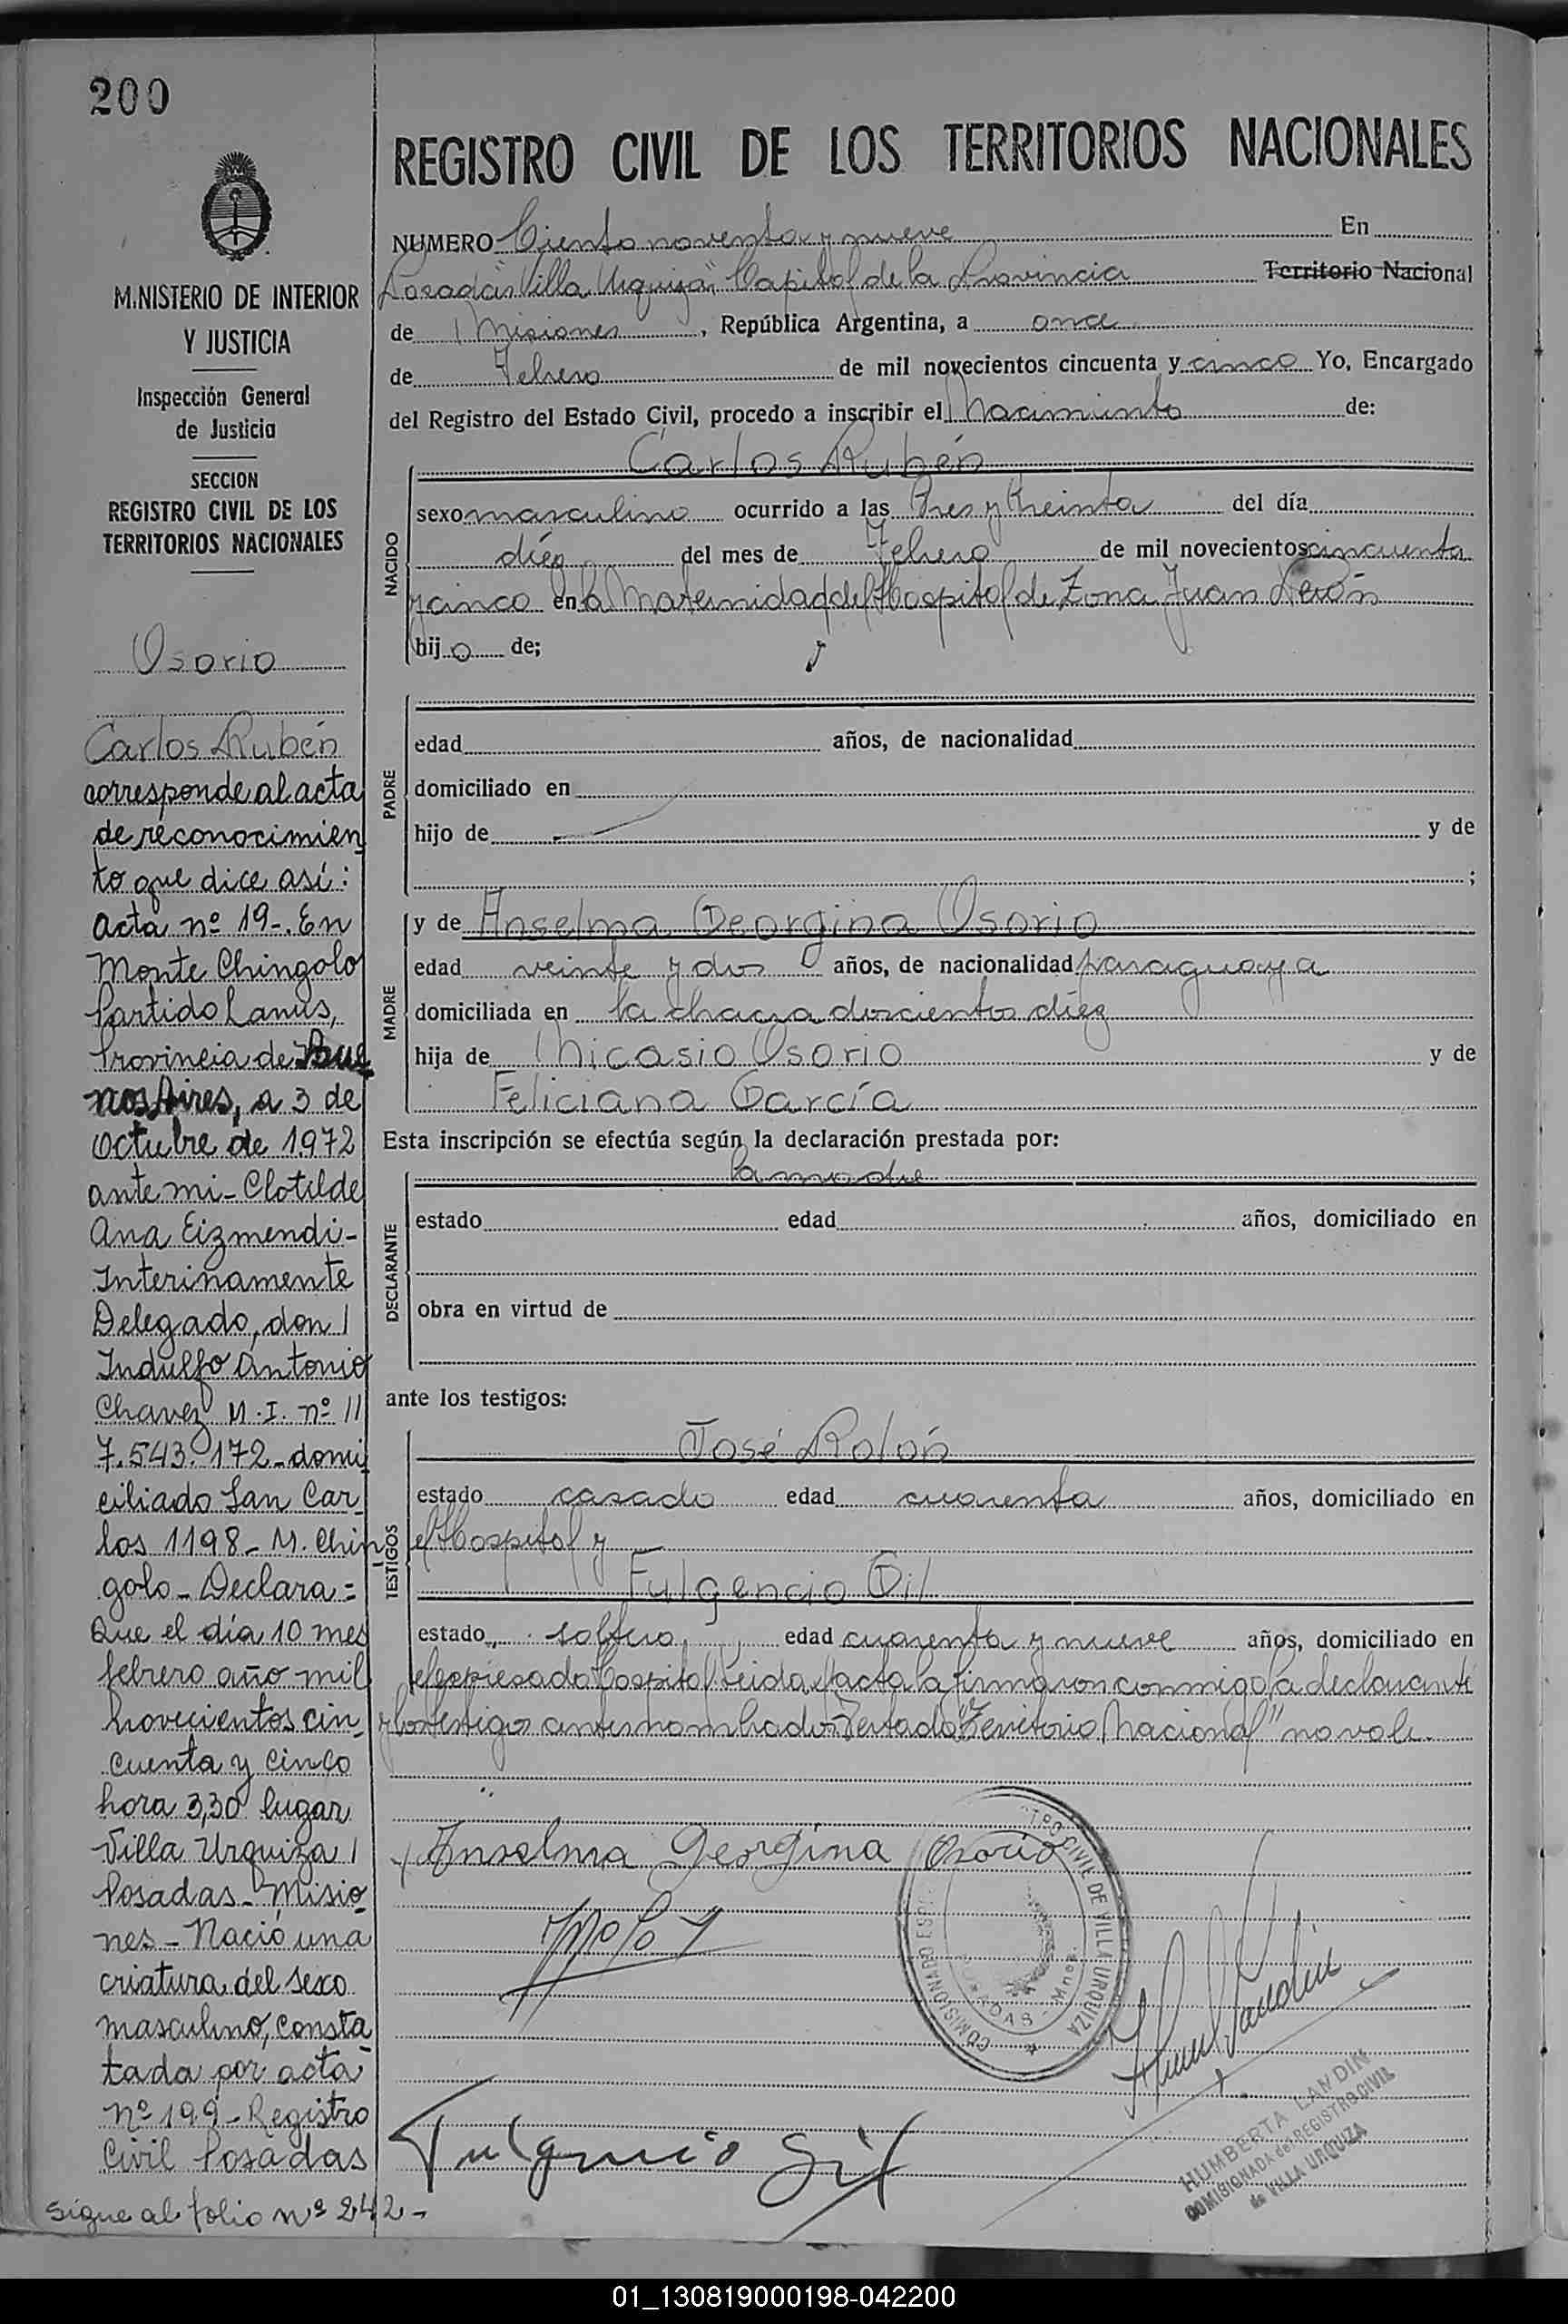 200
REGISTRO CIVIL DE LOS TERRITORIOS NACIONALES
M.NISTERIO DE INTERIOR
Y JUSTICIA
Inspección General
de Justicia
SECCION
REGISTRO CIVIL DE LOS
TERRITORIOS NACIONALES
Osorio
Carlos Rubén
corresponde al acta
de reconocimien
to que dice así:
acta nº 19-. En
Monte Chingolo
Partido Lanús,
Provincia de Bue
nos Aires, a 3 de
Octubre de 1972
ante mi - Clotilde
Ana Eizmendi -
Interinamente
Delegado, don
Indulfo Antonio
Chavez M.I. nº
7.543.172 - domi
ciliado San Car
los 1198 - M. Chin
golo - Declara =
Que el día 10 mes
febrero año mil
novecientos cin
cuenta y cinco
hora 3,30 lugar
Villa Urquiza
Posadas - Misio
nes - Nació una
criatura del sexo
masculino, consta
tada por acta
nº 199 - Registro
Civil Posadas
sigue al folio nº 242 -
NUMERO Ciento noventa y nueve En
Posadas "Villa Urquiza" Capital de la Provincia Territorio Nacional
de Misiones, República Argentina, a once
de Febrero de mil novecientos cincuenta y cinco Yo, Encargado
del Registro del Estado Civil, procedo a inscribir el Nacimiento de:
NACIDO
Carlos Rubén
sexo masculino ocurrido a las Tres y treinta del día
diez del mes de Febrero de mil novecientos cincuenta
y cinco en la Maternidad del Hospital de Zona Juan Perón
hijo de;
PADRE
edad años, de nacionalidad
domiciliado en
hijo de y de
;
MADRE
y de Anselma Georgina Osorio
edad veinte y dos años, de nacionalidad paraguaya
domiciliada en la chacra doscientos diez
hija de Nicasio Osorio y de
Feliciana García
Esta inscripción se efectúa según la declaración prestada por:
DECLARANTE
la madre
estado edad años, domiciliado en
obra en virtud de
ante los testigos:
TESTIGOS
José Rolón
estado casado edad cuarenta años, domiciliado en
el Hospital y
Fulgencio Gil
estado soltero, edad cuarenta y nueve años, domiciliado en
el expresado Hospital. Leida el acta la firmaron conmigo la declarante
y los testigos antes nombrados. Testado "Territorio Nacional" no vale.
Anselma Georgina Osorio
COMISIONADO CIVIL DE VILLA URQUIZA
POSADAS - Mnes.
Fulgencio Gil
HUMBERTA LANDIN
COMISIONADA del REGISTRO CIVIL
de VILLA URQUIZA
01_130819000198-042200